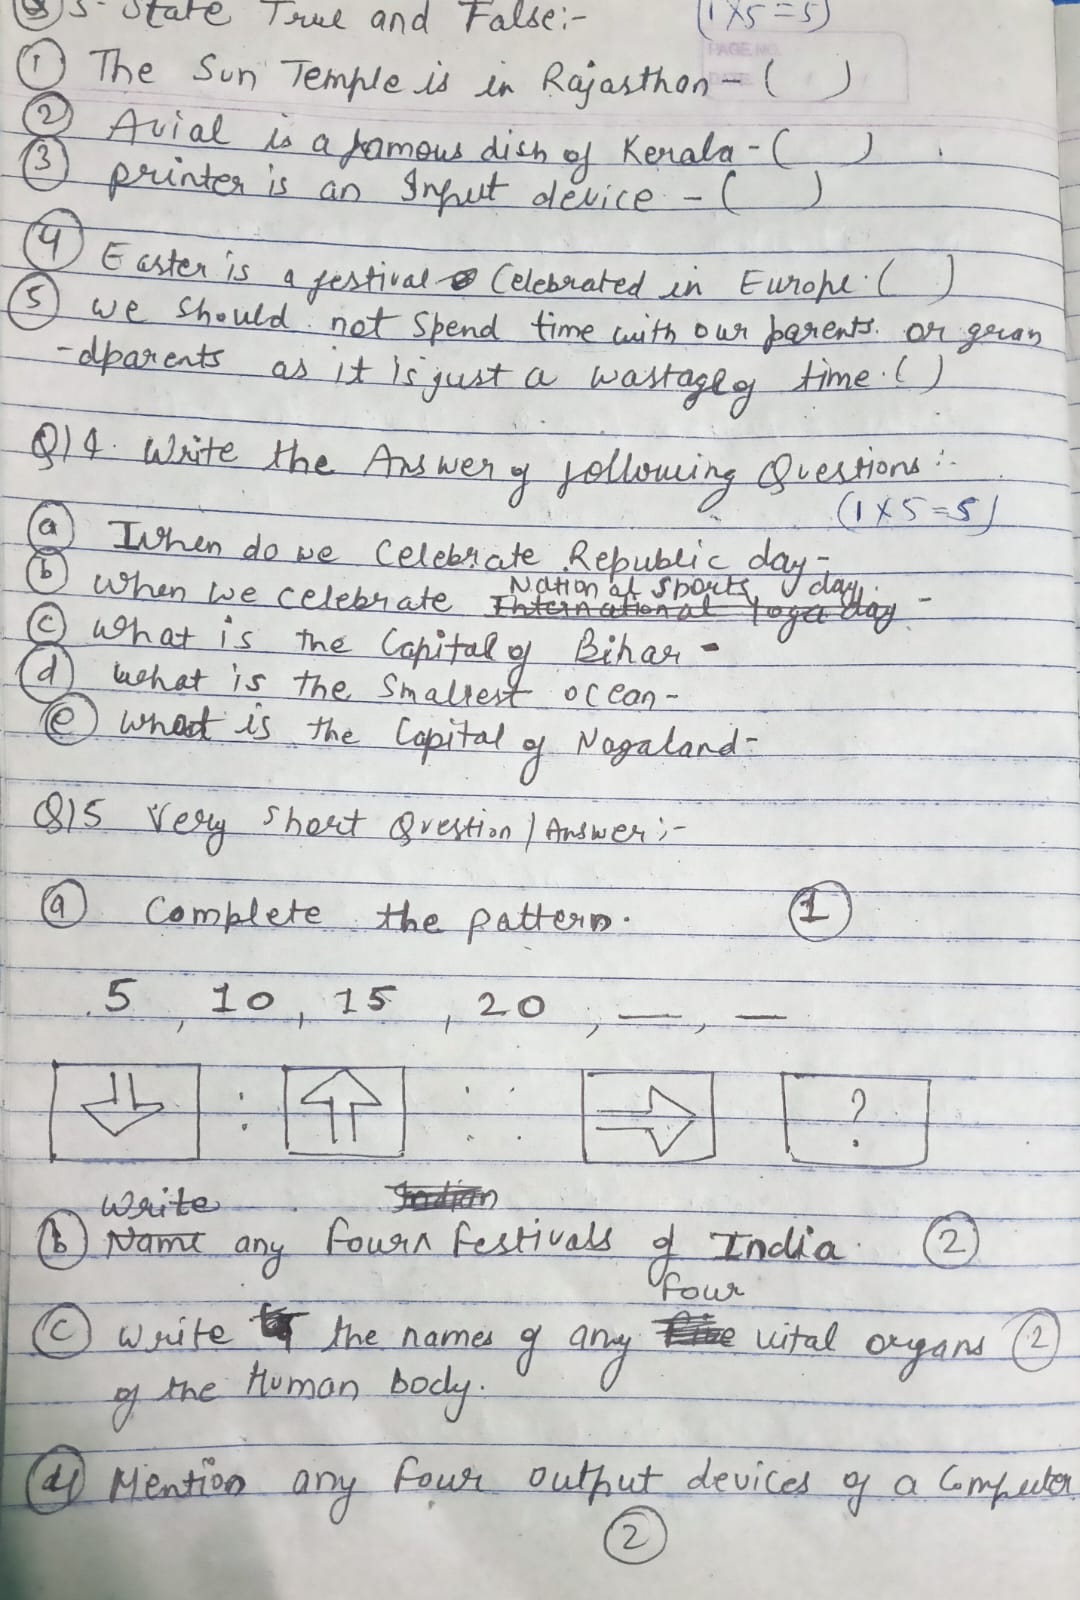 3- State True and False:- (1×5=5)
PAGE NO.
DATE
① The Sun Temple is in Rajasthan - ( )
② Avial is a famous dish of Kerala - ( )
③ printer is an Input device - ( )
④ Easter is a festival Celebrated in Europe. ( )
⑤ we should not spend time with our parents. or gran
-dparents as it is just a wastage of time. ( )
Q14. Write the Answer of following Questions :-
(1×5=5)
ⓐ When do we Celebrate Republic day -
National Sports day.
ⓑ when we celebrate International Yoga day -
ⓒ what is the Capital of Bihar -
ⓓ what is the Smallest ocean -
ⓔ what is the Capital of Nagaland -
Q15 Very Short Question / Answer :-
ⓐ Complete the pattern. ①
5, 10, 15, 20, __, __
: :: ?
Write Indian
ⓑ Name any four festivals of India. ②
four
ⓒ write the names of any five vital organs ②
of the Human body.
ⓓ Mention any four output devices of a Computer
②